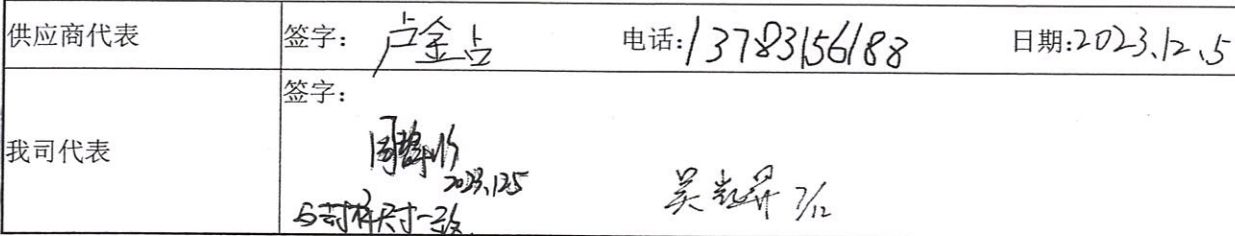 供应商代表 签字: 卢金占 电话:13783156188 日期:2023.12.5
签字:
我司代表
2023.12.5
与封样尺寸一致
吴 7/12